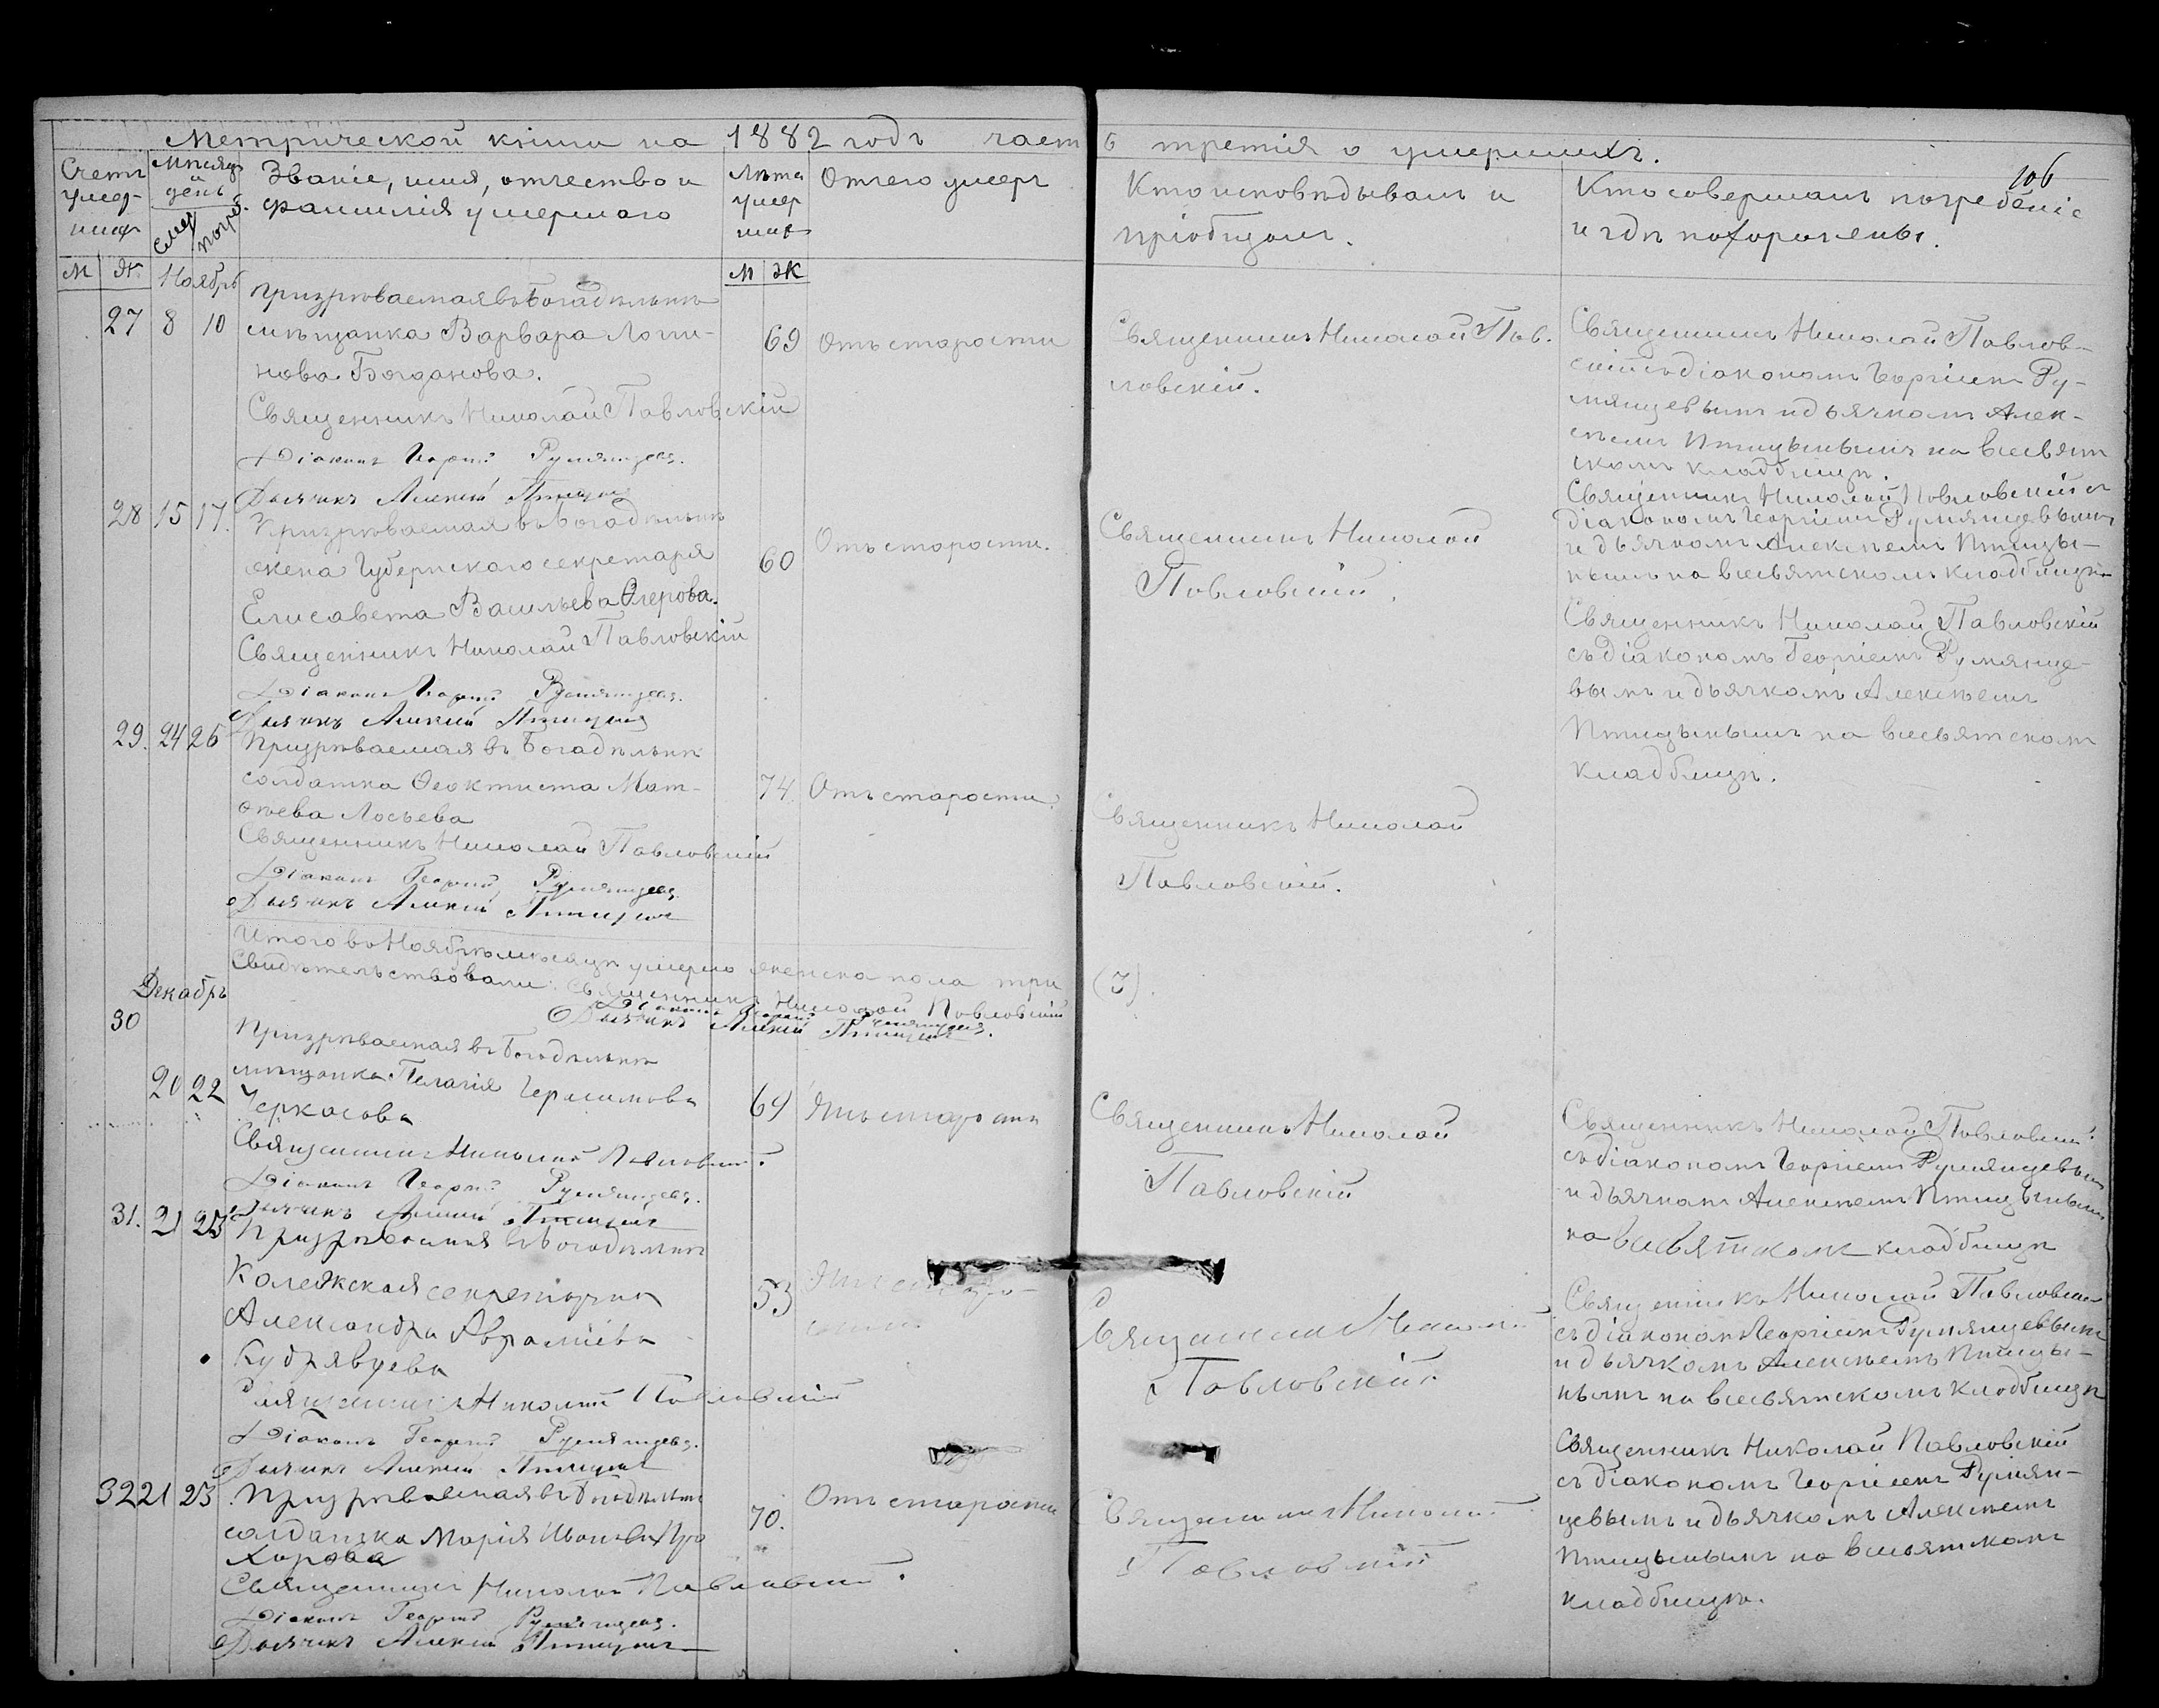 Метрической книги на 1882 годъ част
ь третія о умершихъ.
106
Счетъ умер-
шихъ
Мѣсяцъ и день
смер. погреб.
Званіе, имя, отчество и
фамилія умершаго
Лѣта
умер
шаго
Отчего умеръ
Кто исповѣдывалъ и
пріобщалъ.
Кто совершалъ погребеніе
и гдѣ похоронены.
М Ж Ноябрь М Ж
27 8 10
призрѣваемая въ Богадѣльнѣ
мѣщанка Варвара Логи-
нова Богданова.
69 Отъ старости
Священникъ Николай Пав-
ловскій.
Священникъ Николай Павлов-
скій съ діакономъ Георгіемъ Ру-
мянцевымъ и дьячкомъ Алек-
сѣемъ Птицынымъ на всесвят
скомъ кладбищѣ.
Священникъ Николай Павловскій
Діаконъ Георгій Румянцевъ.
Дьячекъ Алексій Птицынъ
28 15 17.
Призрѣваемая въ Богадѣльнѣ
жена Губернскаго секретаря
Елисавета Васильева Озерова.
60 Отъ старости.
Священникъ Николай
Павловскій.
Священникъ Николай Павловскій съ
діакономъ Георгіемъ Румянцевымъ
и дьячкомъ Алексѣемъ Птицы-
нымъ на всесвятскомъ кладбищѣ
Священникъ Николай Павловскій
Діаконъ Георгій Румянцевъ.
Дьячекъ Алексій Птицынъ
29. 24 26
Призрѣваемая въ Богадѣльнѣ
солдатка Ѳеоктиста Мат-
ѳѣева Лосьева
74 Отъ старости.
Священникъ Николай
Павловскій.
Священникъ Николай Павловскій
съ діакономъ Георгіемъ Румянце-
вымъ и дьячкомъ Алексѣемъ
Птицынымъ на всесвятскомъ
кладбищѣ.
Священникъ Николай Павловскій
Діаконъ Георгій Румянцевъ
Дьячекъ Алексій Птицынъ
Итого въ Ноябрѣ мѣсяцѣ умерло женска пола три
(3).
Свидѣтельствовали: Священникъ Николай Павловскій
Діаконъ Георгій Румянцевъ
Дьячекъ Алексій Птицынъ.
Декабрь
30
20 22
Призрѣваемая въ Богадѣльнѣ
мѣщанка Пелагія Герасимова
Черкасова
69 Отъ старости
Священникъ Николай
Павловскій
Священникъ Николай Павловскій
съ діакономъ Георгіемъ Румянцевымъ
и дьячкомъ Алексѣемъ Птицынымъ
на всесвятскомъ кладбищѣ
Священникъ Николай Павловскій.
Діаконъ Георгій Румянцевъ.
Дьячекъ Алексій Птицынъ
31. 21 23
Призрѣваемая въ Богадѣльнѣ
Колежская секретарша
Александра Авраміева
Кудрявцева
53
Священникъ Николай
Павловскій.
Священникъ Николай Павловскій
съ діакономъ Георгіемъ Румянцевымъ
и дьячкомъ Алексѣемъ Птицы-
нымъ на всесвятскомъ кладбищѣ
Священникъ Николай Павловскій
Діаконъ Георгій Румянцевъ.
Дьячекъ Алексій Птицынъ
32 21 23
Призрѣваемая въ Богадѣльнѣ
солдатка Марія Иванова Про
хорова
70. Отъ старости
Священникъ Николай
Павловскій
Священникъ Николай Павловскій
съ діакономъ Георгіемъ Румян-
цевымъ и дьячкомъ Алексѣемъ
Птицынымъ на всесвятскомъ
кладбищѣ.
Священникъ Николай Павловскій.
Діаконъ Георгій Румянцевъ.
Дьячекъ Алексій Птицынъ